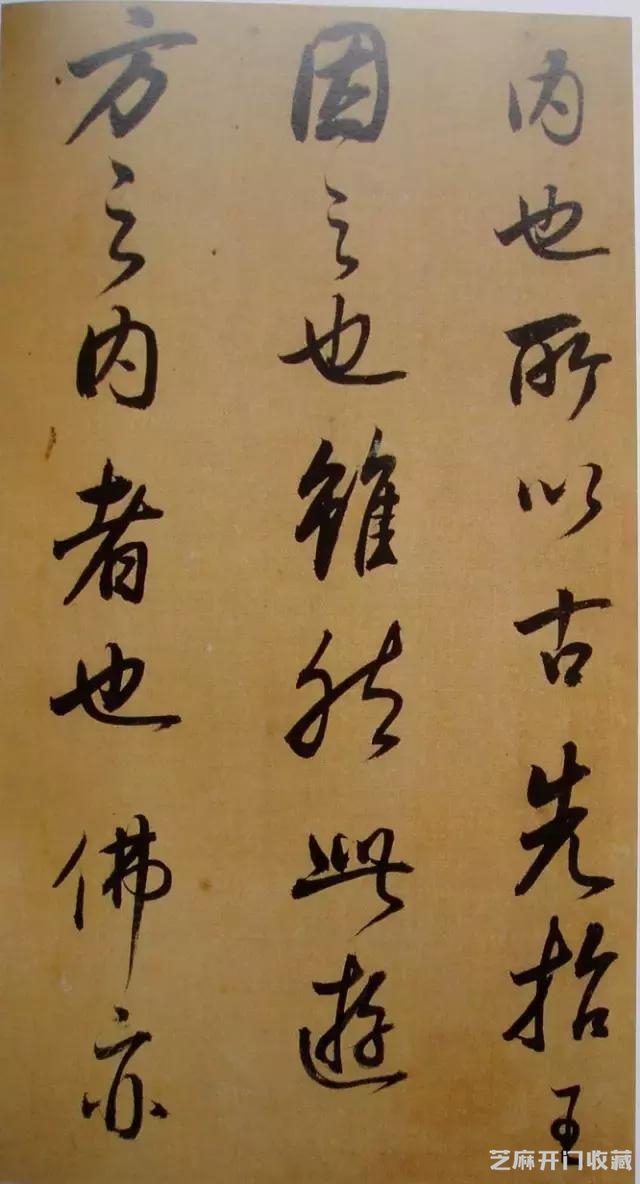 内也所以古先哲王
因之也雖然此遊
方之内者也佛亦
芝麻开门收藏